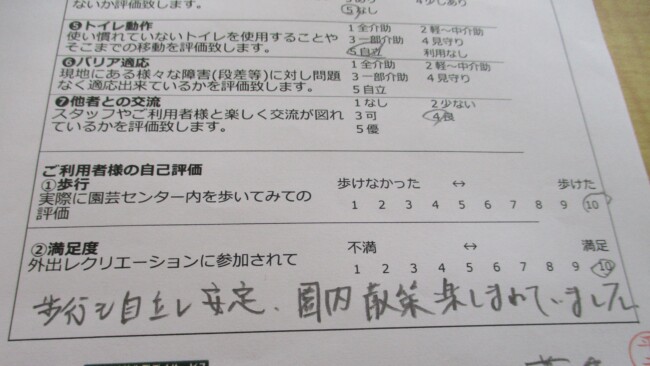 ないか評価致します。
5なし
❺トイレ動作 1全介助 2軽～中介助
使い慣れていないトイレを使用することや 3一部介助 4見守り
そこまでの移動を評価致します。 5自立 利用なし
❻バリア適応 1全介助 2軽～中介助
現地にある様々な障害(段差等)に対し問題 3一部介助 4見守り
なく適応出来ているかを評価致します。 5自立
❼他者との交流 1なし 2少ない
スタッフやご利用者様と楽しく交流が図れ 3可 4良
ているかを評価致します。 5優
ご利用者様の自己評価
①歩行 歩けなかった ↔ 歩けた
実際に園芸センター内を歩いてみての 1 2 3 4 5 6 7 8 9 10
評価
②満足度 不満 ↔ 満足
外出レクリエーションに参加されて 1 2 3 4 5 6 7 8 9 10
歩行も自立し安定、園内散策楽しまれていました